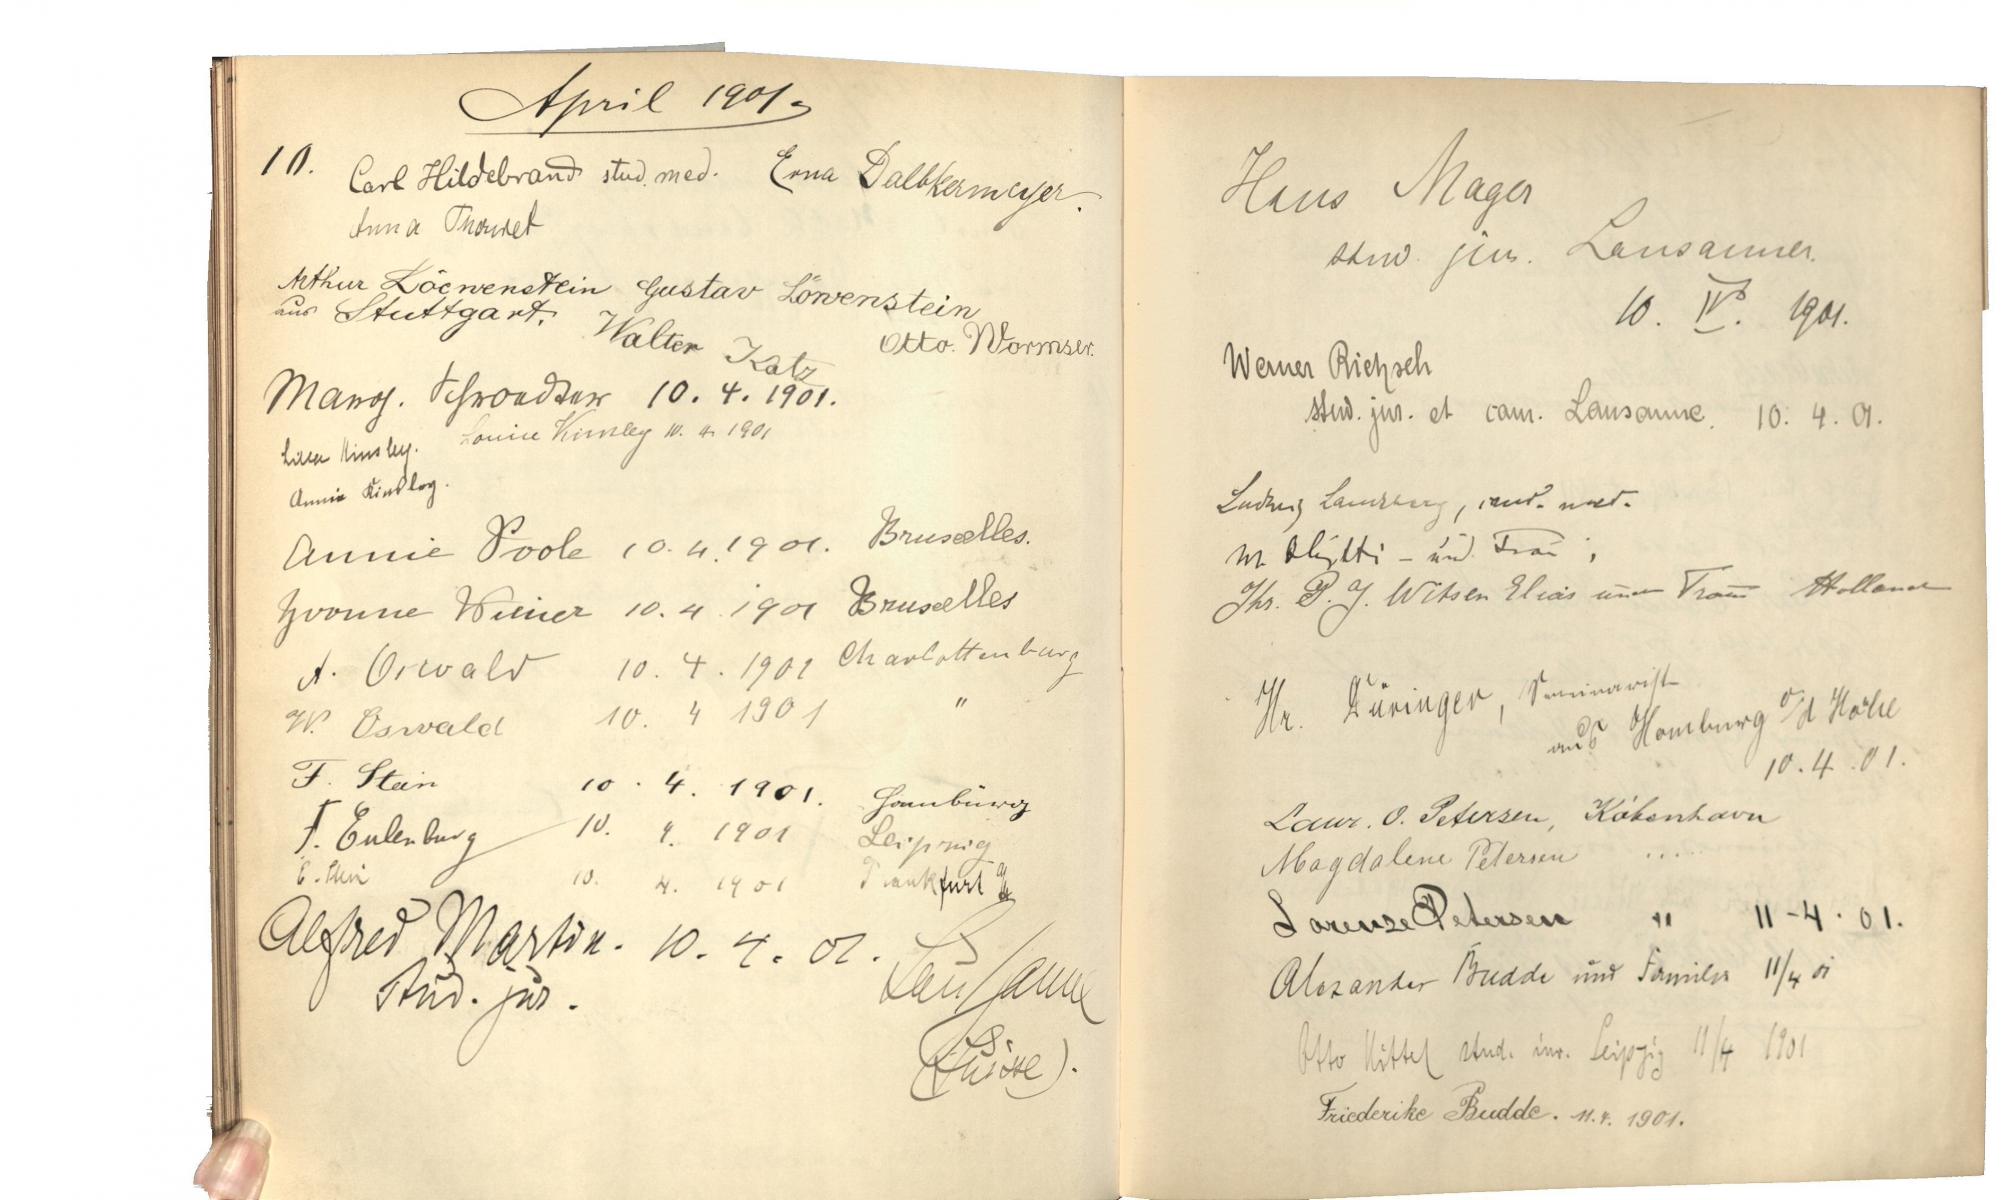 April 1901.
10. Carl Hildebrand stud. med. Erna Dalbkermeyer.
Anna Thouret
Arthur Löewenstein Gustav Löwenstein
aus Stuttgart. Walter Katz Otto Wormser.
10. 4. 1901.
Kinsley. Louise Kinsley 10. 4. 1901
Annie Kinsley.
Annie Poole 10. 4. 1901. Bruxelles.
Yvonne Wiener 10. 4. 1901 Bruxelles
A. Oswald 10. 4. 1901 Charlottenburg
W. Oswald 10. 4 1901 "
F. Stein 10. 4. 1901. Hamburg
F. Eulenburg 10. 4. 1901 Leipzig
E. 10. 4. 1901 Frankfurt
Alfred Martin. 10. 4. 01. Lausanne
stud. jur. (Suisse).
Hans Mager
stud. jur. Lausanne.
10. IV. 1901.
Werner
stud. jur. et cam. Lausanne. 10. 4. 01.
Ludwig cand. med.
und Frau
Jhr. P. J. Witsen Elias und Frau Holland
Hr. Düringer, Seminarist
aus Homburg v/d Höhe
10. 4. 01.
Laur. O. Petersen, København
Magdalene Petersen .....
Lorenze Petersen " 11-4. 01.
Alexander Budde und Familie 11/4 01
Otto Kittel stud. Leipzig 11/4 1901
Friederike Budde. 11.4. 1901.